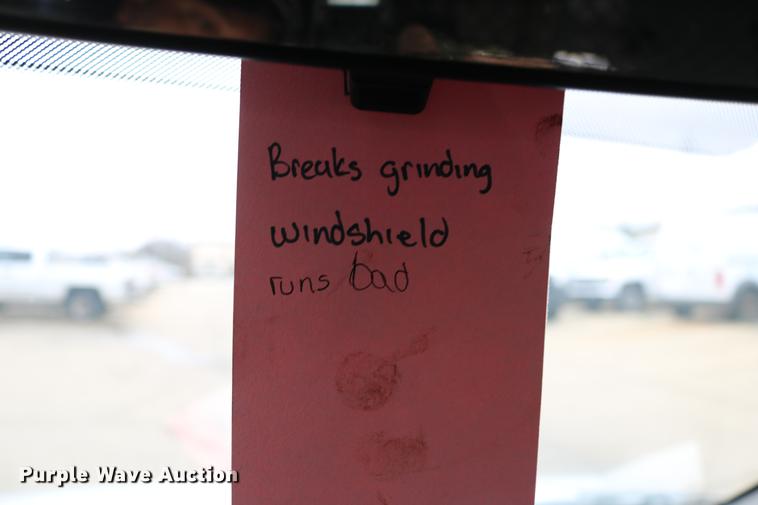 Breaks grinding
windshield
runs bad
Purple Wave Auction